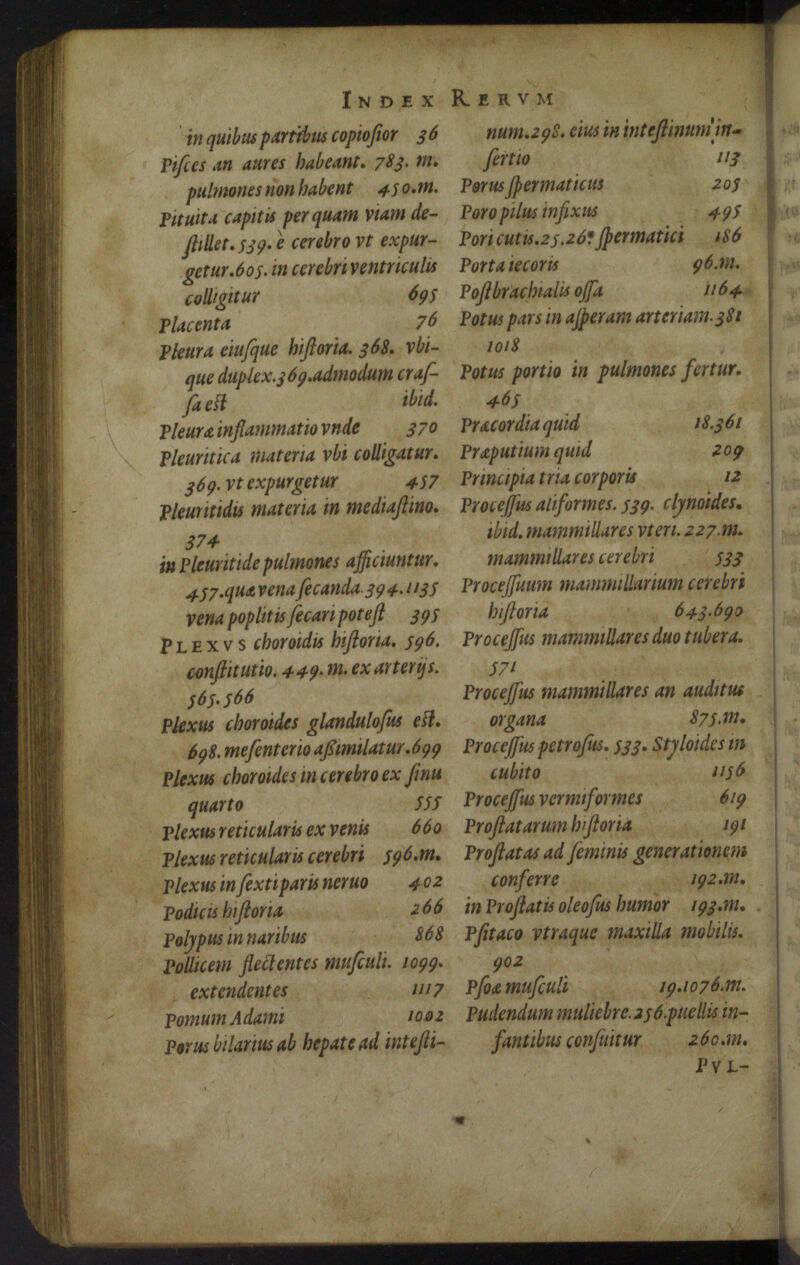 INDEX RERVM
in quibus partibus copiosior 36
Pisces an aures habeant. 783. m.
pulmones non habent 450.m.
Pituita capitis per quam viam de-
stillet. 539. è cerebro vt expur-
getur.605. in cerebri ventriculis
colligitur 695
Placenta 76
Pleura eiusque historia. 368. vbi-
que duplex.369.admodum cras-
sa est ibid.
Pleuræ inflammatio vnde 370
Pleuritica materia vbi colligatur.
369. vt expurgetur 457
Pleuritidis materia in mediastino.
374
in Pleuritide pulmones afficiuntur.
457.quæ vena secanda.394.1135
vena poplitis secari potest 395
PLEXVS choroidis historia. 596.
constitutio. 449. m. ex arterijs.
565.566
Plexus choroides glandulosus est.
698. mesenterio aßimilatur.699
Plexus choroides in cerebro ex sinu
quarto 555
Plexus reticularis ex venis 660
Plexus reticularis cerebri 596.m.
Plexus in sexti paris neruo 402
Podicis historia 266
Polypus in naribus 868
Pollicem flectentes musculi. 1099.
extendentes 1117
Pomum Adami 1002
Porus bilarius ab hepate ad intesti-
num.298. eius in intestinum in-
sertio 113
Porus spermaticus 205
Poro pilus infixus 495
Pori cutis.25.26. spermatici 186
Porta iecoris 96.m.
Postbrachialis ossa 1164
Potus pars in asperam arteriam.381
1018
Potus portio in pulmones fertur.
465
Præcordia quid 18.361
Præputium quid 209
Principia tria corporis 12
Processus aliformes. 539. clynoides.
ibid. mammillares vteri. 227.m.
mammillares cerebri 533
Processuum mammillarium cerebri
historia 643.690
Processus mammillares duo tubera.
571
Processus mammillares an auditus
organa 875.m.
Processus petrosus. 533. Styloides in
cubito 1156
Processus vermiformes 619
Prostatarum historia 191
Prostatas ad seminis generationem
conferre 192.m.
in Prostatis oleosus humor 193.m.
Psitaco vtraque maxilla mobilis.
902
Psoæ musculi 19.1076.m.
Pudendum muliebre.256.puellis in-
fantibus consuitur 260.m.
PVL-